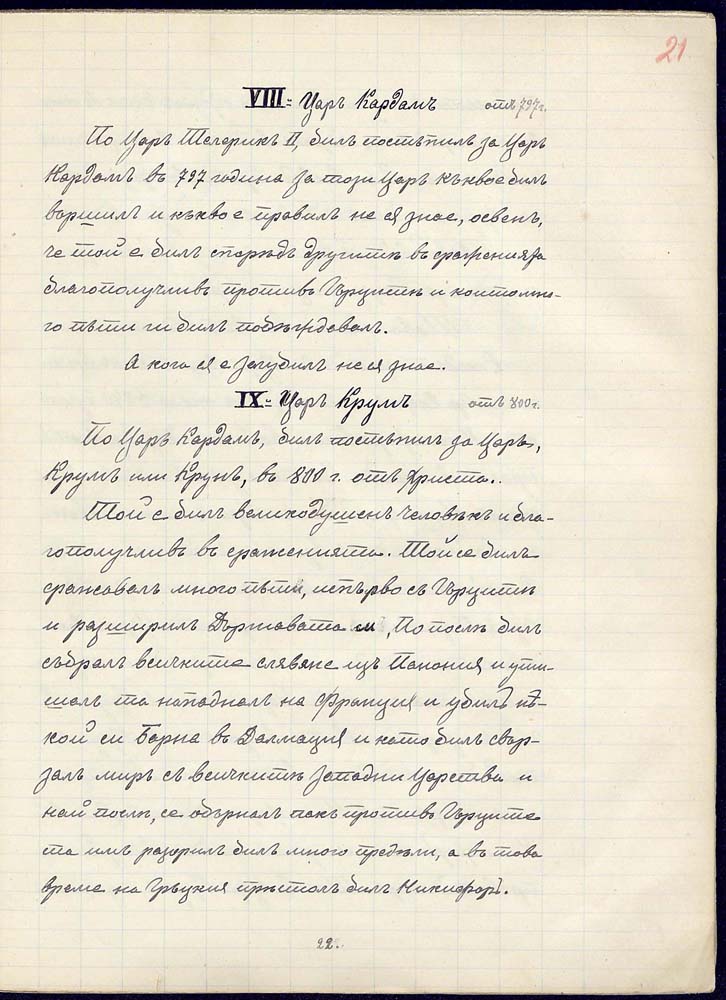 21
VIII = Царъ Кардамъ отъ 797г.
По Царъ Телерикъ II, билъ постѫпилъ за Царъ
Кардамъ въ 797 година за този Царъ какво е билъ
вършилъ и какво е правилъ не ся знае, освенъ,
че той е билъ споредъ другитѣ въ сражения та
благополучливъ противъ Гърцитѣ и които мно-
го пѫти ги билъ побѣждавалъ.
А кога ся е загубилъ не ся знае.
IX = Царъ Крумъ отъ 800г.
По Царъ Кардамъ, билъ постѫпилъ за Царъ,
Крумъ или Крунъ, въ 800 г. отъ Христа.
Той е билъ великодушенъ человѣкъ и бла-
гополучливъ въ сраженията. Той се билъ
сражавалъ много пѫти, испърво съ Гърцитѣ
и разширилъ Държавата и, По послѣ билъ
събралъ всичките славяне изъ Панония и оти-
шалъ та нападналъ на Франция и убилъ нѣ-
кой си Борна въ Далмация и като билъ свър-
залъ миръ съ всичкитѣ западни Царства и
най послѣ, се обърналъ пакъ противъ Гърците
та имъ разорилъ билъ много предѣли, а въ това
време на Гръцкия прѣстолъ билъ Никифоръ.
22.